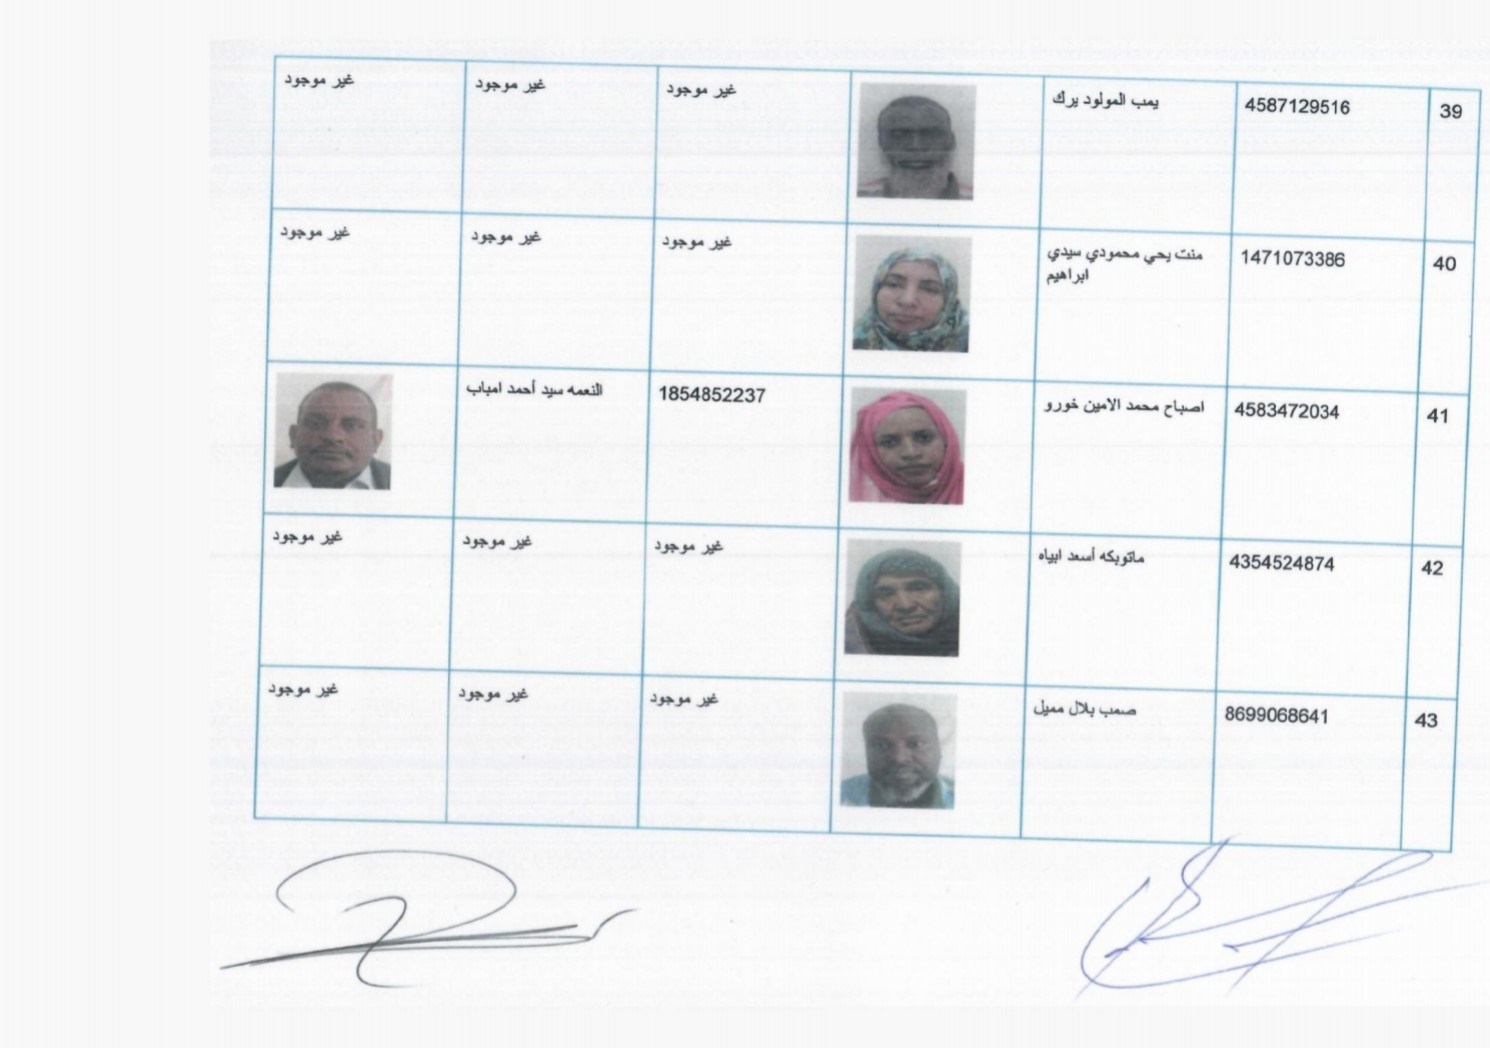 39 4587129516 يمب المولود يرك غير موجود غير موجود غير موجود
40 1471073386 منت يحي محمودي سيدي غير موجود غير موجود غير موجود
ابراهيم
41 4583472034 اصباح محمد الامين خورو 1854852237 النعمه سيد أحمد امباب
42 4354524874 ماتوبكه أسعد ابياه غير موجود غير موجود غير موجود
43 8699068641 صمب بلال مميل غير موجود غير موجود غير موجود